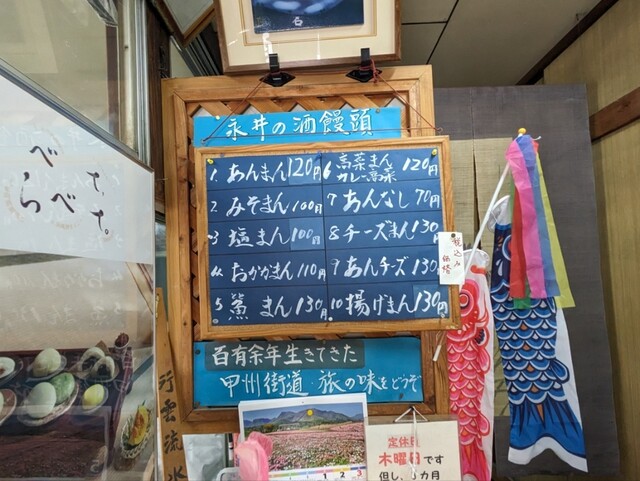 永井の酒饅頭
1. あんまん 120円
2 みそまん 100円
3 塩まん 100円
4. おかかまん 110円
5 鯊まん 130円
6 高菜まん
カレー高菜 120円
7 あんなし 70円
8 チーズまん 130円
9 あんチーズ 130
10 揚げまん 130円
税込み
価格
百有余年生きてきた
甲州街道・旅の味をどうぞ
行雲流水
定休日
木曜日です
但し、
カ月